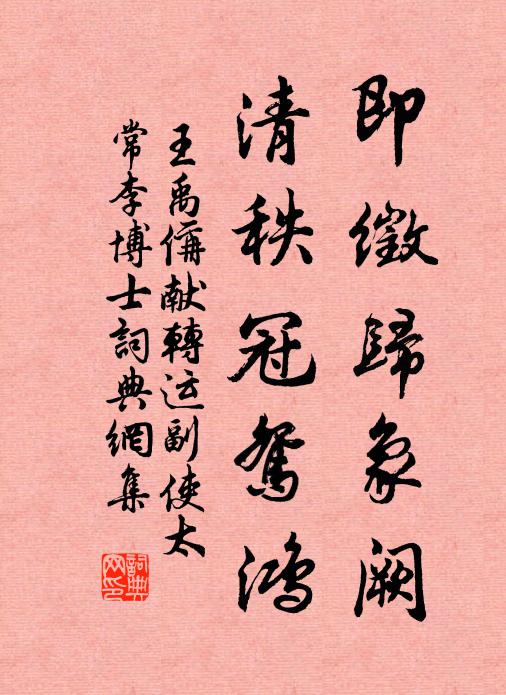 即徵歸象闕
清秩冠鴛鴻
王禹偁献轉运副使太
常李博士詞典網集
詞典网印